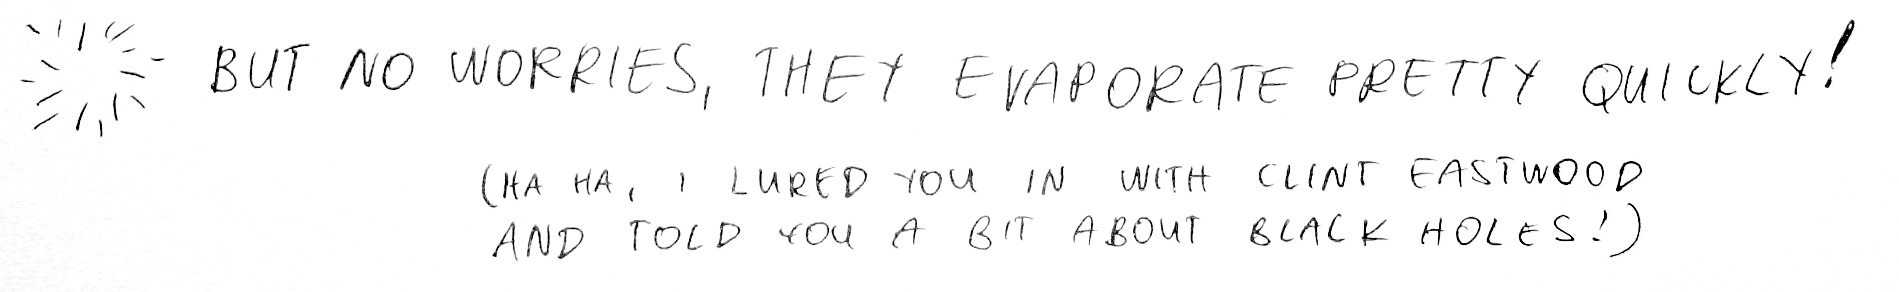 BUT NO WORRIES, THEY EVAPORATE PRETTY QUICKLY!
(HA HA, I LURED YOU IN WITH CLINT EASTWOOD
AND TOLD YOU A BIT ABOUT BLACK HOLES!)